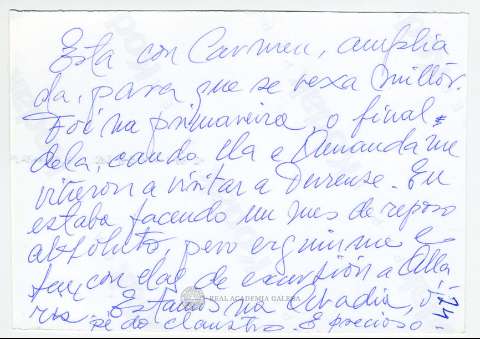 Esta con Carmen, amplia
da, para que se vexa millor.
Foi na primaveira, o final
dela, cando ela e Amanda me
viñeron a visitar a Ourense. Eu
estaba facendo un mes de reposo
absoluto, pero erguinme e
fun con elas de excursión a Alla
riz. Estamos na Abadía,
REAL ACADEMIA GALEGA
sé do claustro. É precioso